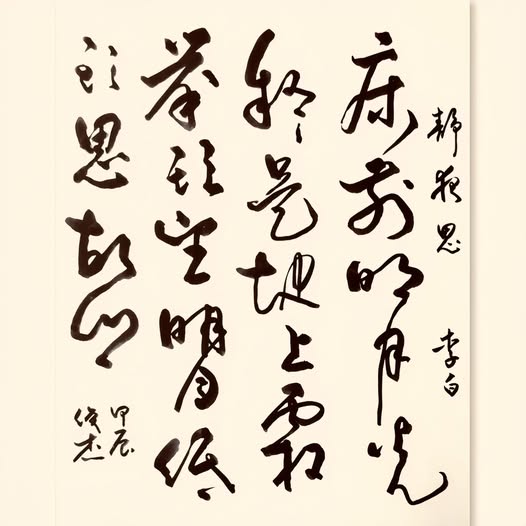 静夜思 李白
床前明月光
疑是地上霜
举头望明月低
头思故乡
甲辰
俊杰